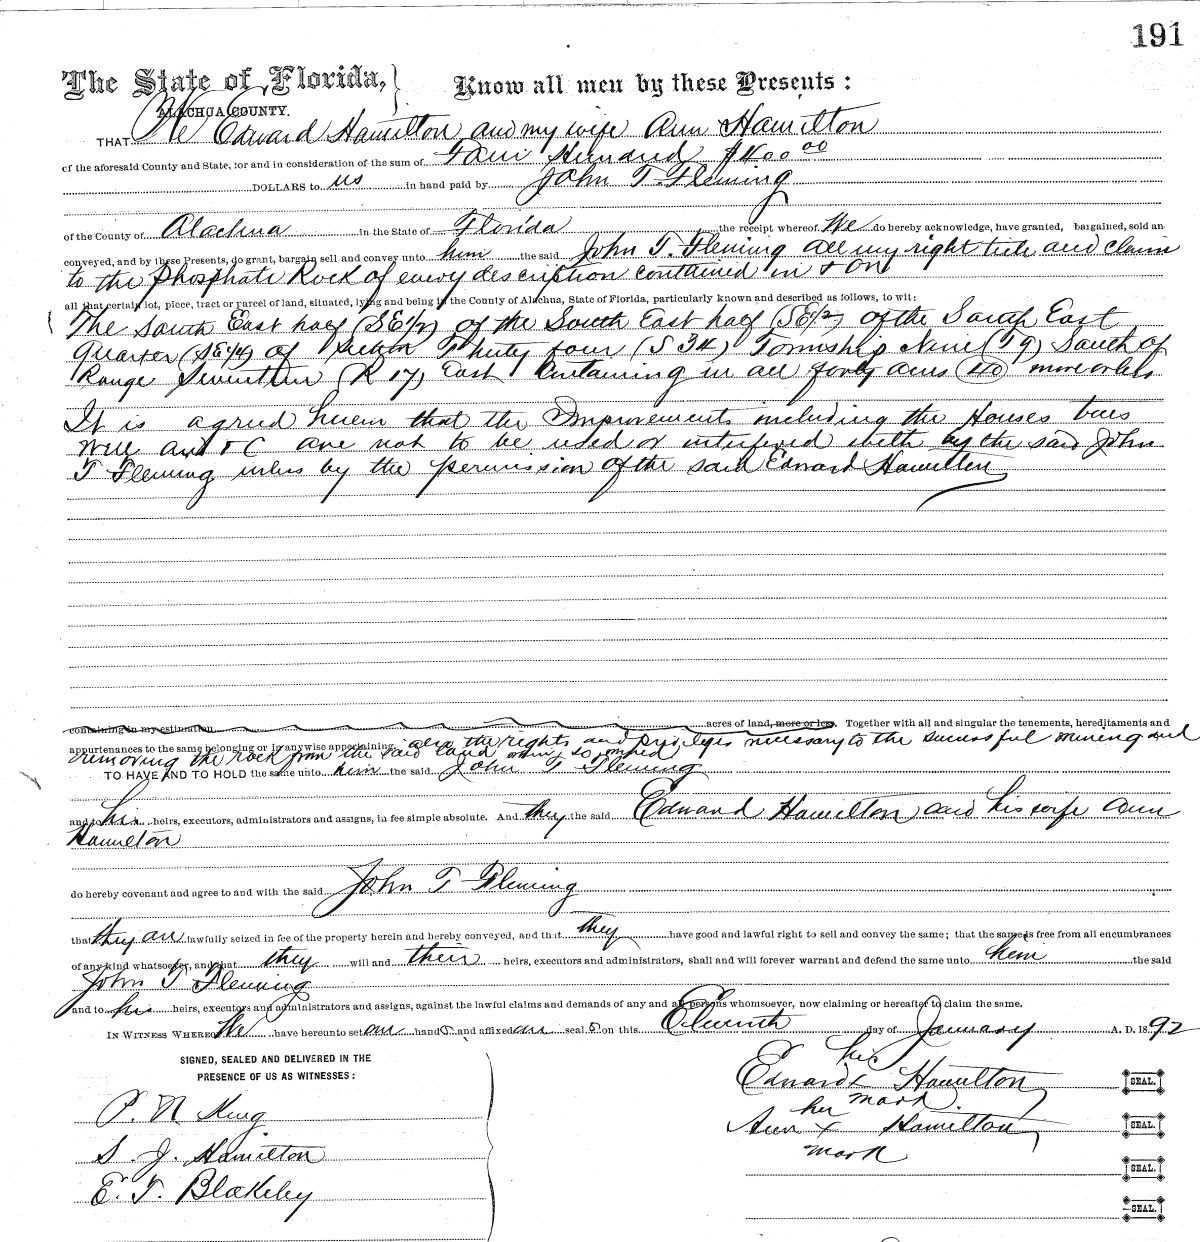 191
The State of Florida, } Know all men by these Presents :
ALACHUA COUNTY.
THAT We Edward Hamilton and my wife Ann Hamilton
of the aforesaid County and State, for and in consideration of the sum of Four Hundred $400 00
DOLLARS to us in hand paid by John T. Fleming
of the County of Alachua in the State of Florida the receipt whereof We do hereby acknowledge, have granted, bargained, sold an
conveyed, and by these Presents, do grant, bargain sell and convey unto him the said John T. Fleming all my right title and claim
to the Phosphate Rock of every description contained in & on
all that certain lot, piece, tract or parcel of land, situated, lying and being in the County of Alachua, State of Florida, particularly known and described as follows, to wit:
The South East half (SE1/2) of the South East half (SE1/2) of the South East
Quarter (SE1/4) of Section Thirty four (S 34) Township Nine (T9) South of
Range Seventeen (R 17) East Containing in all forty acres (40) more or less
It is agreed herein that the Improvements including the Houses trees
Well and & C are not to be used or interfered with by the said John
T Fleming unless by the permission of the said Edward Hamilton
containing in my estimation acres of land, more or less. Together with all and singular the tenements, hereditaments and
appurtenances to the same belonging or in anywise appertaining, also the rights and privileges necessary to the successful mining and
removing the rock from the said land when so mined
TO HAVE AND TO HOLD the same unto him the said John T Fleming
and to his heirs, executors, administrators and assigns, in fee simple absolute. And they the said Edward Hamilton and his wife Ann
Hamilton
do hereby covenant and agree to and with the said John T Fleming
that they are lawfully seized in fee of the property herein and hereby conveyed, and that they have good and lawful right to sell and convey the same; that the same is free from all encumbrances
of any kind whatsoever, and that they will and their heirs, executors and administrators, shall and will forever warrant and defend the same unto him the said
John T Fleming
and to his heirs, executors and administrators and assigns, against the lawful claims and demands of any and all persons whomsoever, now claiming or hereafter to claim the same.
IN WITNESS WHEREOF We have hereunto set our hand s and affixed our seal s on this Eleventh day of January A. D. 1892
SIGNED, SEALED AND DELIVERED IN THE
PRESENCE OF US AS WITNESSES :
P. N King
S. J. Hamilton
E. T. Blakeley
his
Edward x Hamilton SEAL.
mark
her
Ann x Hamilton SEAL.
mark
SEAL.
SEAL.